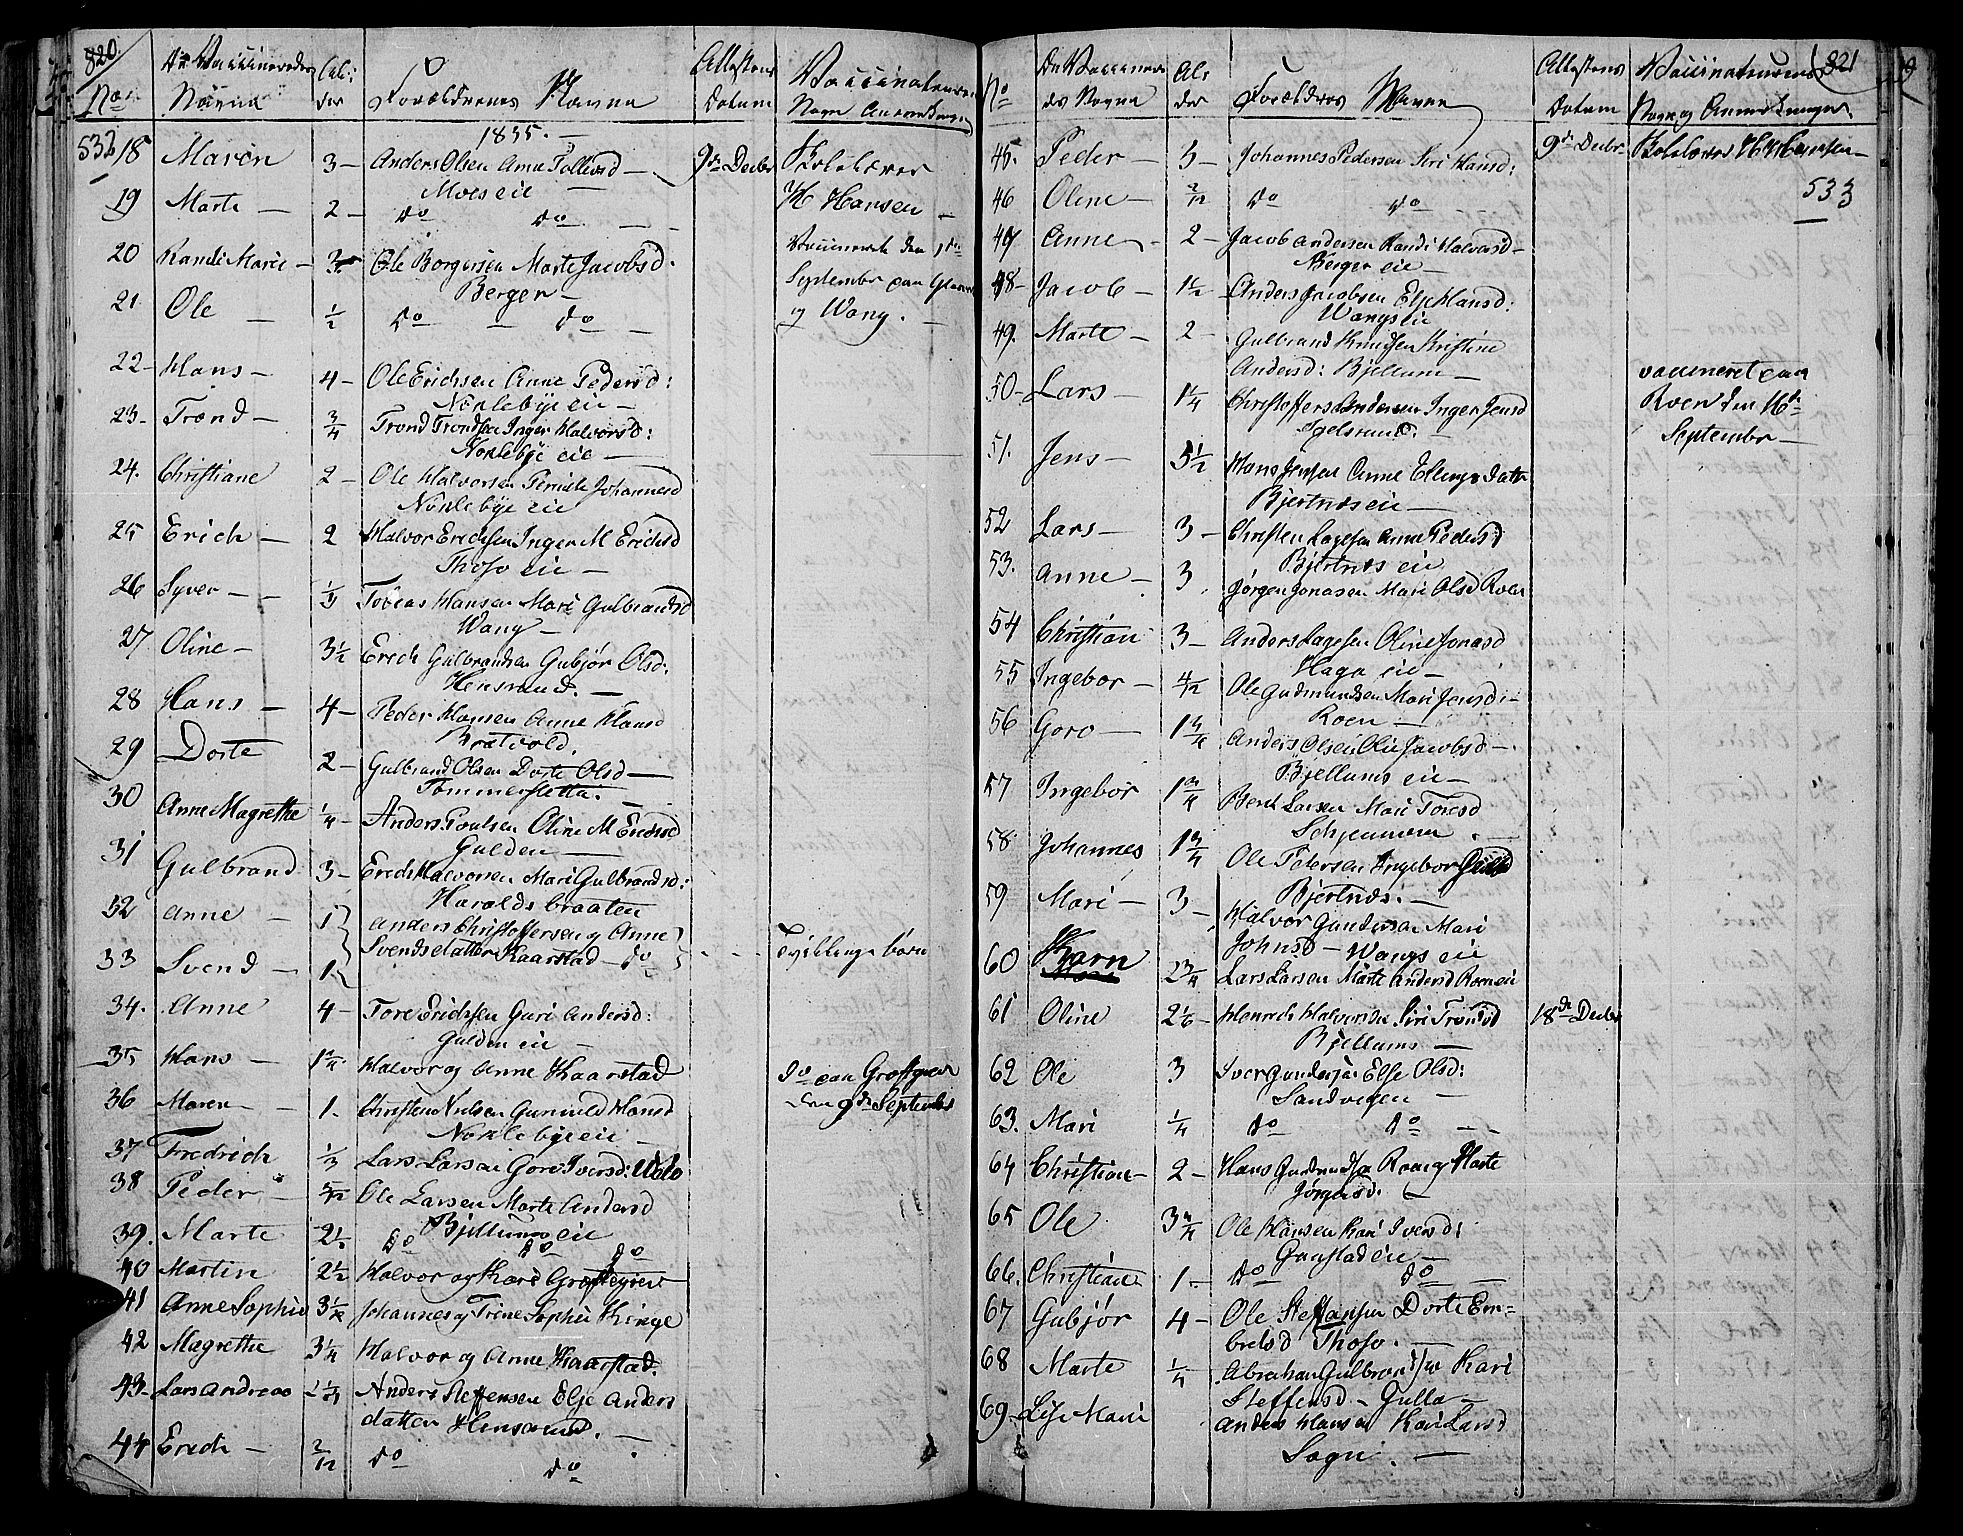 820
De Vaccineredes Navne
Al: der
Forældrenes Navne
Attestens Datum
No.
532
1835. —
18 Maren 3 — Anders Olsen Anne Tollevsd — 9de Decbr Kirkesanger
Moes eie —
19 Marte — 2 — do do H Hansen —
20 Randi Marie — Ole Borgersen Marte Jacobsd. Vaccineret den
Berger — September paa
21 Ole — 1/2 do — do — og Wang. —
22 — Hans — 4 — Ole Erichsen Anne Pedersd:
Noklebye eie —
23 — Trond — 3/4 Trond Trondsen Inger Halvorsd:
Noklebye eie —
24. Christiane 2 — Ole Halvorsen Pernille Johannesd
Noklebye eie
25 Erich — 2 Halvor Erichsen Inger M Erichsd
Thoso eie —
26 Syver — 1/3 Tobias Hansen Mari Gulbrandsd
Wang —
27 Oline — 3 1/2 Erich Gulbrandsen Gubjør Olsd:
Hensrud. —
28 Hans — 4 — Peder Hansen Anne Hansd
Bratvold.
29 Dorte 2 — Gulbrand Olsen Dorte Olsd —
Tommersletta. —
30 Anne Magrethe 1/4 Anders Poulsen Oline M Erichsd
Gulden —
31 Gulbrand 3 — Erich Halvorsen Mari Gulbrandsd:
Haraldsbraaten
32 Anne — 1 Anders Christoffersen og Anne
33 Svend — 1 Svendsdatter Kaarstad — do Tvillingebørn
34. Anne 4 — Tore Erichsen Guri Andersd:
Gulden eie —
35 Hans — 1 3/4 Halvor og Anne Kaarstad do paa
36 Maren — 1. Christen Nielsen Gunild Hansd den 9de September
Noklebye eie —
37 Fredrich 1/3 Lars Larsen Goro Iversd:
38 Peder — 5/12 Ole Larsen Marte Andersd
Bjellums eie
39. Marte 2 1/2 do do do
40 Martin 2 1/2 Halvor og Kari
41 Anne Sophie 3 1/2 Johannes og Trine Sophie
42 Magrethe 3 1/4 Halvor og Anne Kaarstad.
43 — Lars Andreas Anders Steffensen Else Anders
datter Hensrud. —
44 Erich — 2/12 do do
821
No De Vaccinere des Navne Al: der Forældres Navne Attestens Datum Vaccinateurens Navn og Anmærkninger
45. Peder — 5 — Johannes Pedersen Siri Hansd: 9de Decbr Kirkesanger H Hansen —
533
46 Oline — 2/12 do do
47 Anne — 2 — Jacob Andersen Randi Halvorsd —
Berger eie —
48 — Jacob — 1 1/2 Anders Jacobsen Else Hansd:
Wangs eie
49. Marte — 2 — Gulbrand Knudsen Kristine
Andersd: Bjellum — vaccineret paa
50 — Lars — 1 1/4 Christoffer Andersen Inger Jensd Roen den 16de
Igelsrud. — September —
51. Jens — 3 1/2 Hans Jensen Anne Ellings datr
Bjertnæs eie —
52 Lars — 3 — Christen Lagesen Anne Pedersd
Bjertnæs eie
53. Anne — 3 Jørgen Jonasen Mari Olsd Roen
54 Christian 3 — Anders Lagesen Oline Jonasd
Haga eie —
55 Ingebor — 4/12 Ole Gudmundsen Mari Jensd: —
Roen —
56 Goro — 1 3/4 Anders Olsen Olia Jacobsd —
Bjellums eie —
57 Ingebor 1 3/4 Bent Larsen Mari Toresd
58 Johannes 1 3/4 Ole Petersen Ingebor
Bjertnæs. —
59 Mari — 3 — Halvor Gundersen Mari
Johnsd — Wangs eie
60 Karn 2 3/4 Lars Larsen Marte Andersd Roen eie
61 Oline 2 1/6 Henrich Halvorsen Siri Trondsd 18de Decbr
Bjellums —
62 Ole 3 Iver Gundersen Else Olsd:
Sandvigen —
63. Mari 1/4 do do —
64 Christian — 2 — Hans Gudmundsen Roen og Marte
Jørgensd. —
65 Ole 3 3/4 Ole Hansen Kari Iversd:
Granstad eie —
66. Christian 1 — do do —
67 Gubjør 4 — Ole Steffansen Dorte Em=
bretsd Thoso. —
68 Marte 1/4 Abraham Gulbrandsen Kari
Steffensd — Gulla —
69 — Lise Mari Anders Hansen Kari Larsd
Sogn. —